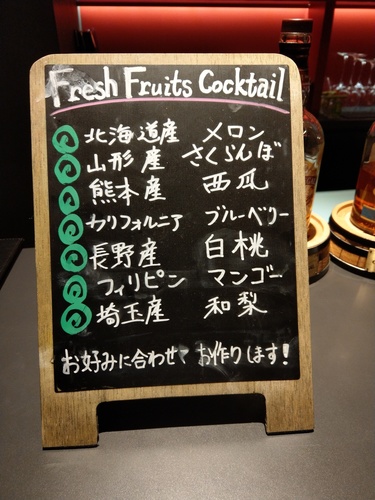 Fresh Fruits Cocktail
北海道産 メロン
山形産 さくらんぼ
熊本産 西瓜
カリフォルニア ブルーベリー
長野産 白桃
フィリピン マンゴー
埼玉産 和梨
お好みに合わせて お作りします!